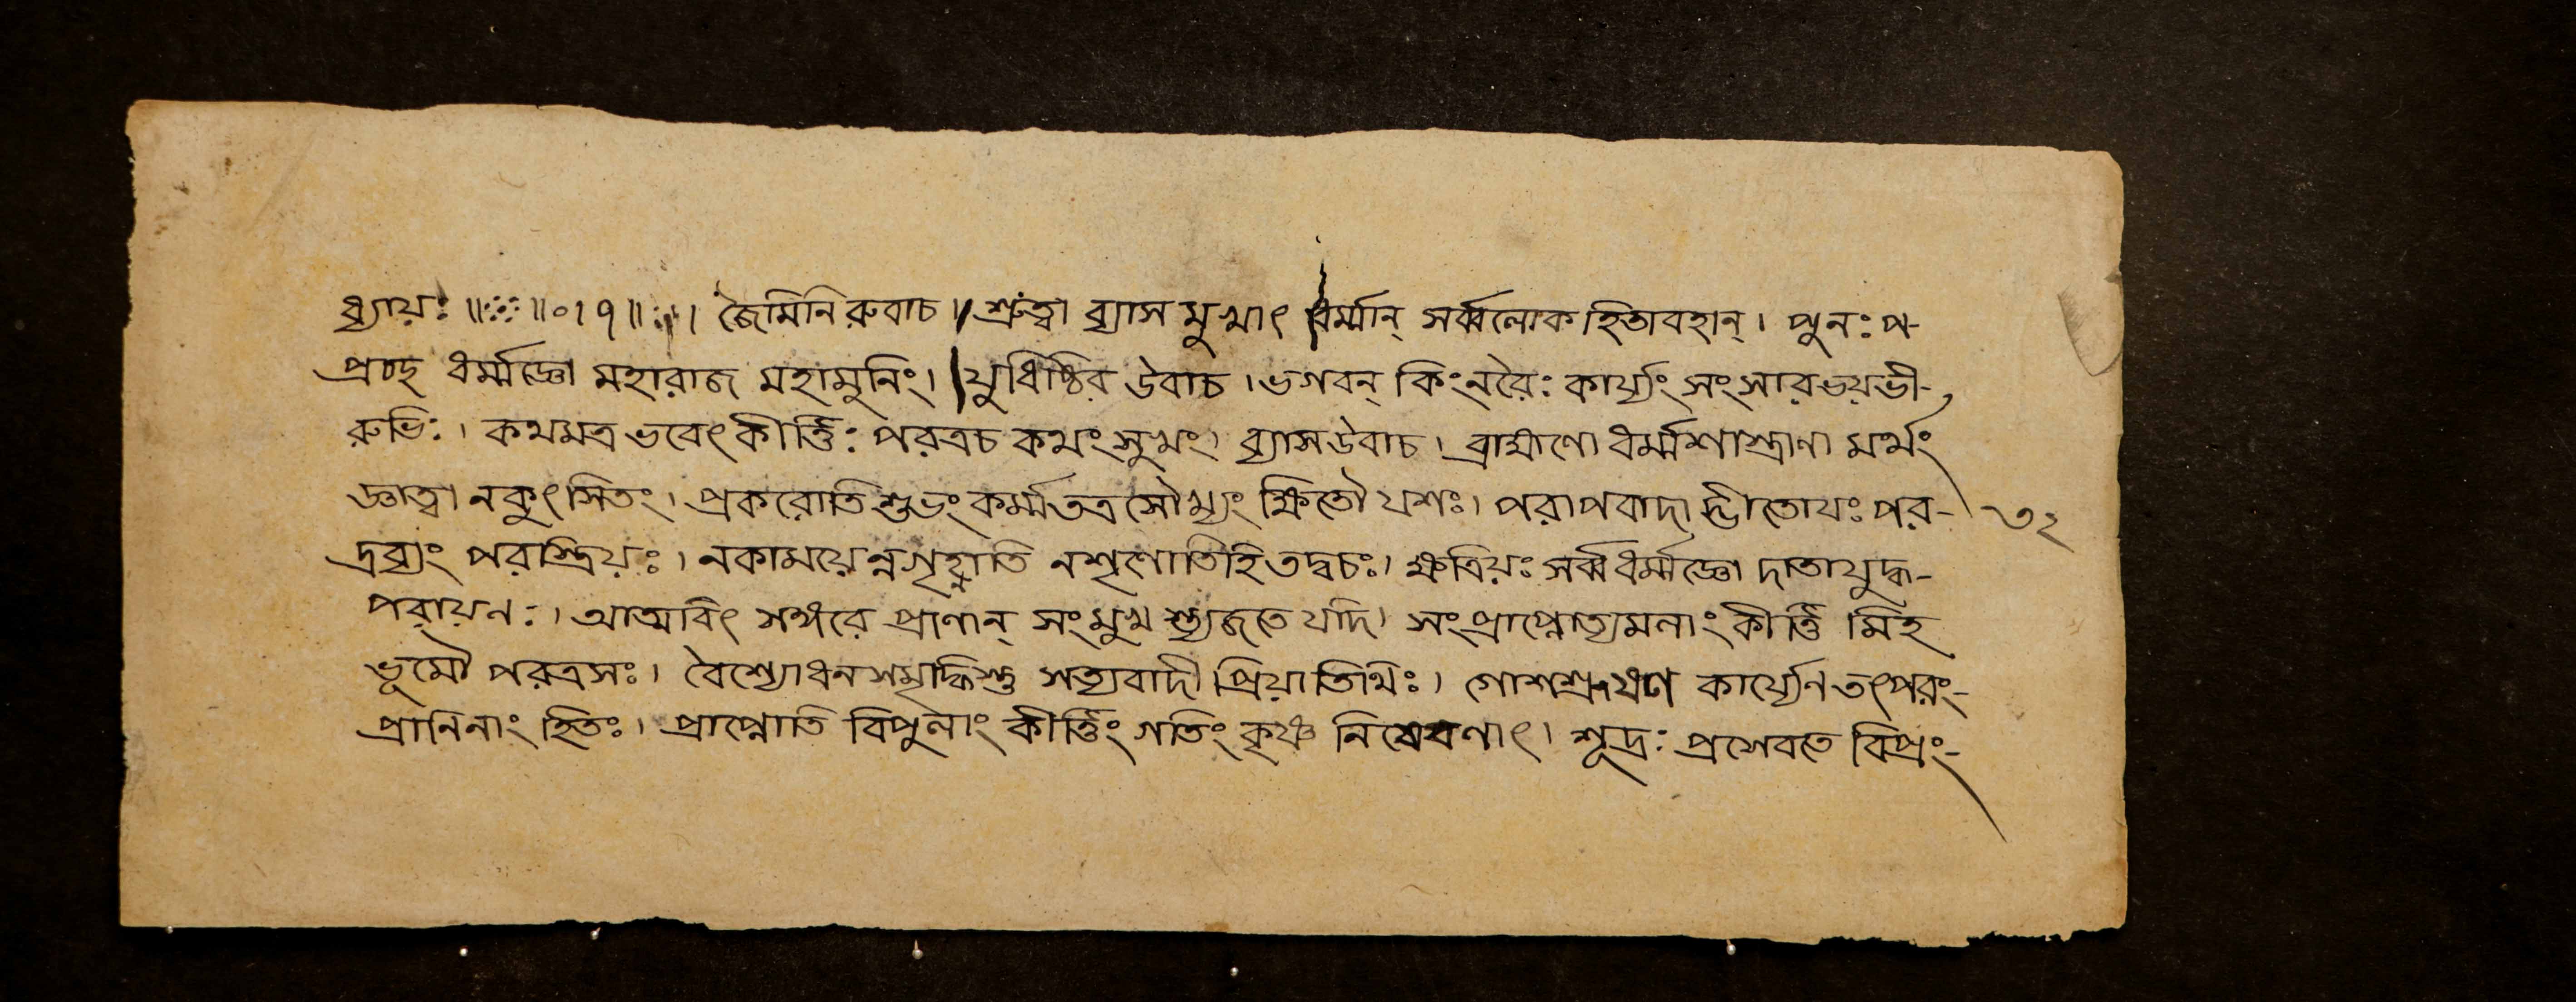 ধ্যায়ঃ ॥ঃ০ঃ॥০।৭॥ঃ॥। জৈমিনি রুবাচ।। শ্রুত্বা ব্যাস মুখাৎ ধর্ম্মান্ সর্ব্বলোক হিতাবহান্। পুনঃ প-
প্রচ্ছ ধর্ম্মজ্ঞো মহারাজ মহামুনিং। যুধিষ্ঠির উবাচ। ভগবন্ কিংনরৈঃ কার্য্যং সংসারভয়ভী-
রুভিঃ। কথমত্র ভবেৎ কীর্ত্তিঃ পরত্রচ কথং সুখং। ব্যাসউবাচ। ব্রাহ্মণো ধর্ম্মশাস্ত্রাণা মর্থং
জ্ঞাত্বা নকুৎসিতং। প্রকরোতি শুভং কর্ম্ম তত্র সৌখ্যং ক্ষিতৌ যশঃ। পরাপবাদা দ্ভীতোযঃ পর- ৩২
দ্রব্যং পরস্ত্রিয়ঃ। নকাময়েন্নগৃহ্ণাতি নশৃণোতিহি তদ্বচঃ। ক্ষত্রিয়ঃ সর্ব্বধর্ম্মজ্ঞো দাতাযুদ্ধ-
পরায়নঃ। আত্মবিৎ সঙ্গরে প্রাণান্ সংমুখ স্ত্যজতে যদি। সংপ্রাপ্নোত্যমলাং কীর্ত্তি মিহ
ভূমৌ পরত্রসঃ। বৈশ্যোধনসমৃদ্ধিস্তু সত্যবাদী প্রিয়াতিথিঃ। গোশশ্রূষণ কার্য্যেন তৎপরঃ-
প্রানিনাং হিতঃ। প্রাপ্নোতি বিপুলাং কীর্ত্তিং গতিং কৃষ্ণ নিষেবণাৎ। শূদ্রঃ প্রসেবতে বিপ্রং-